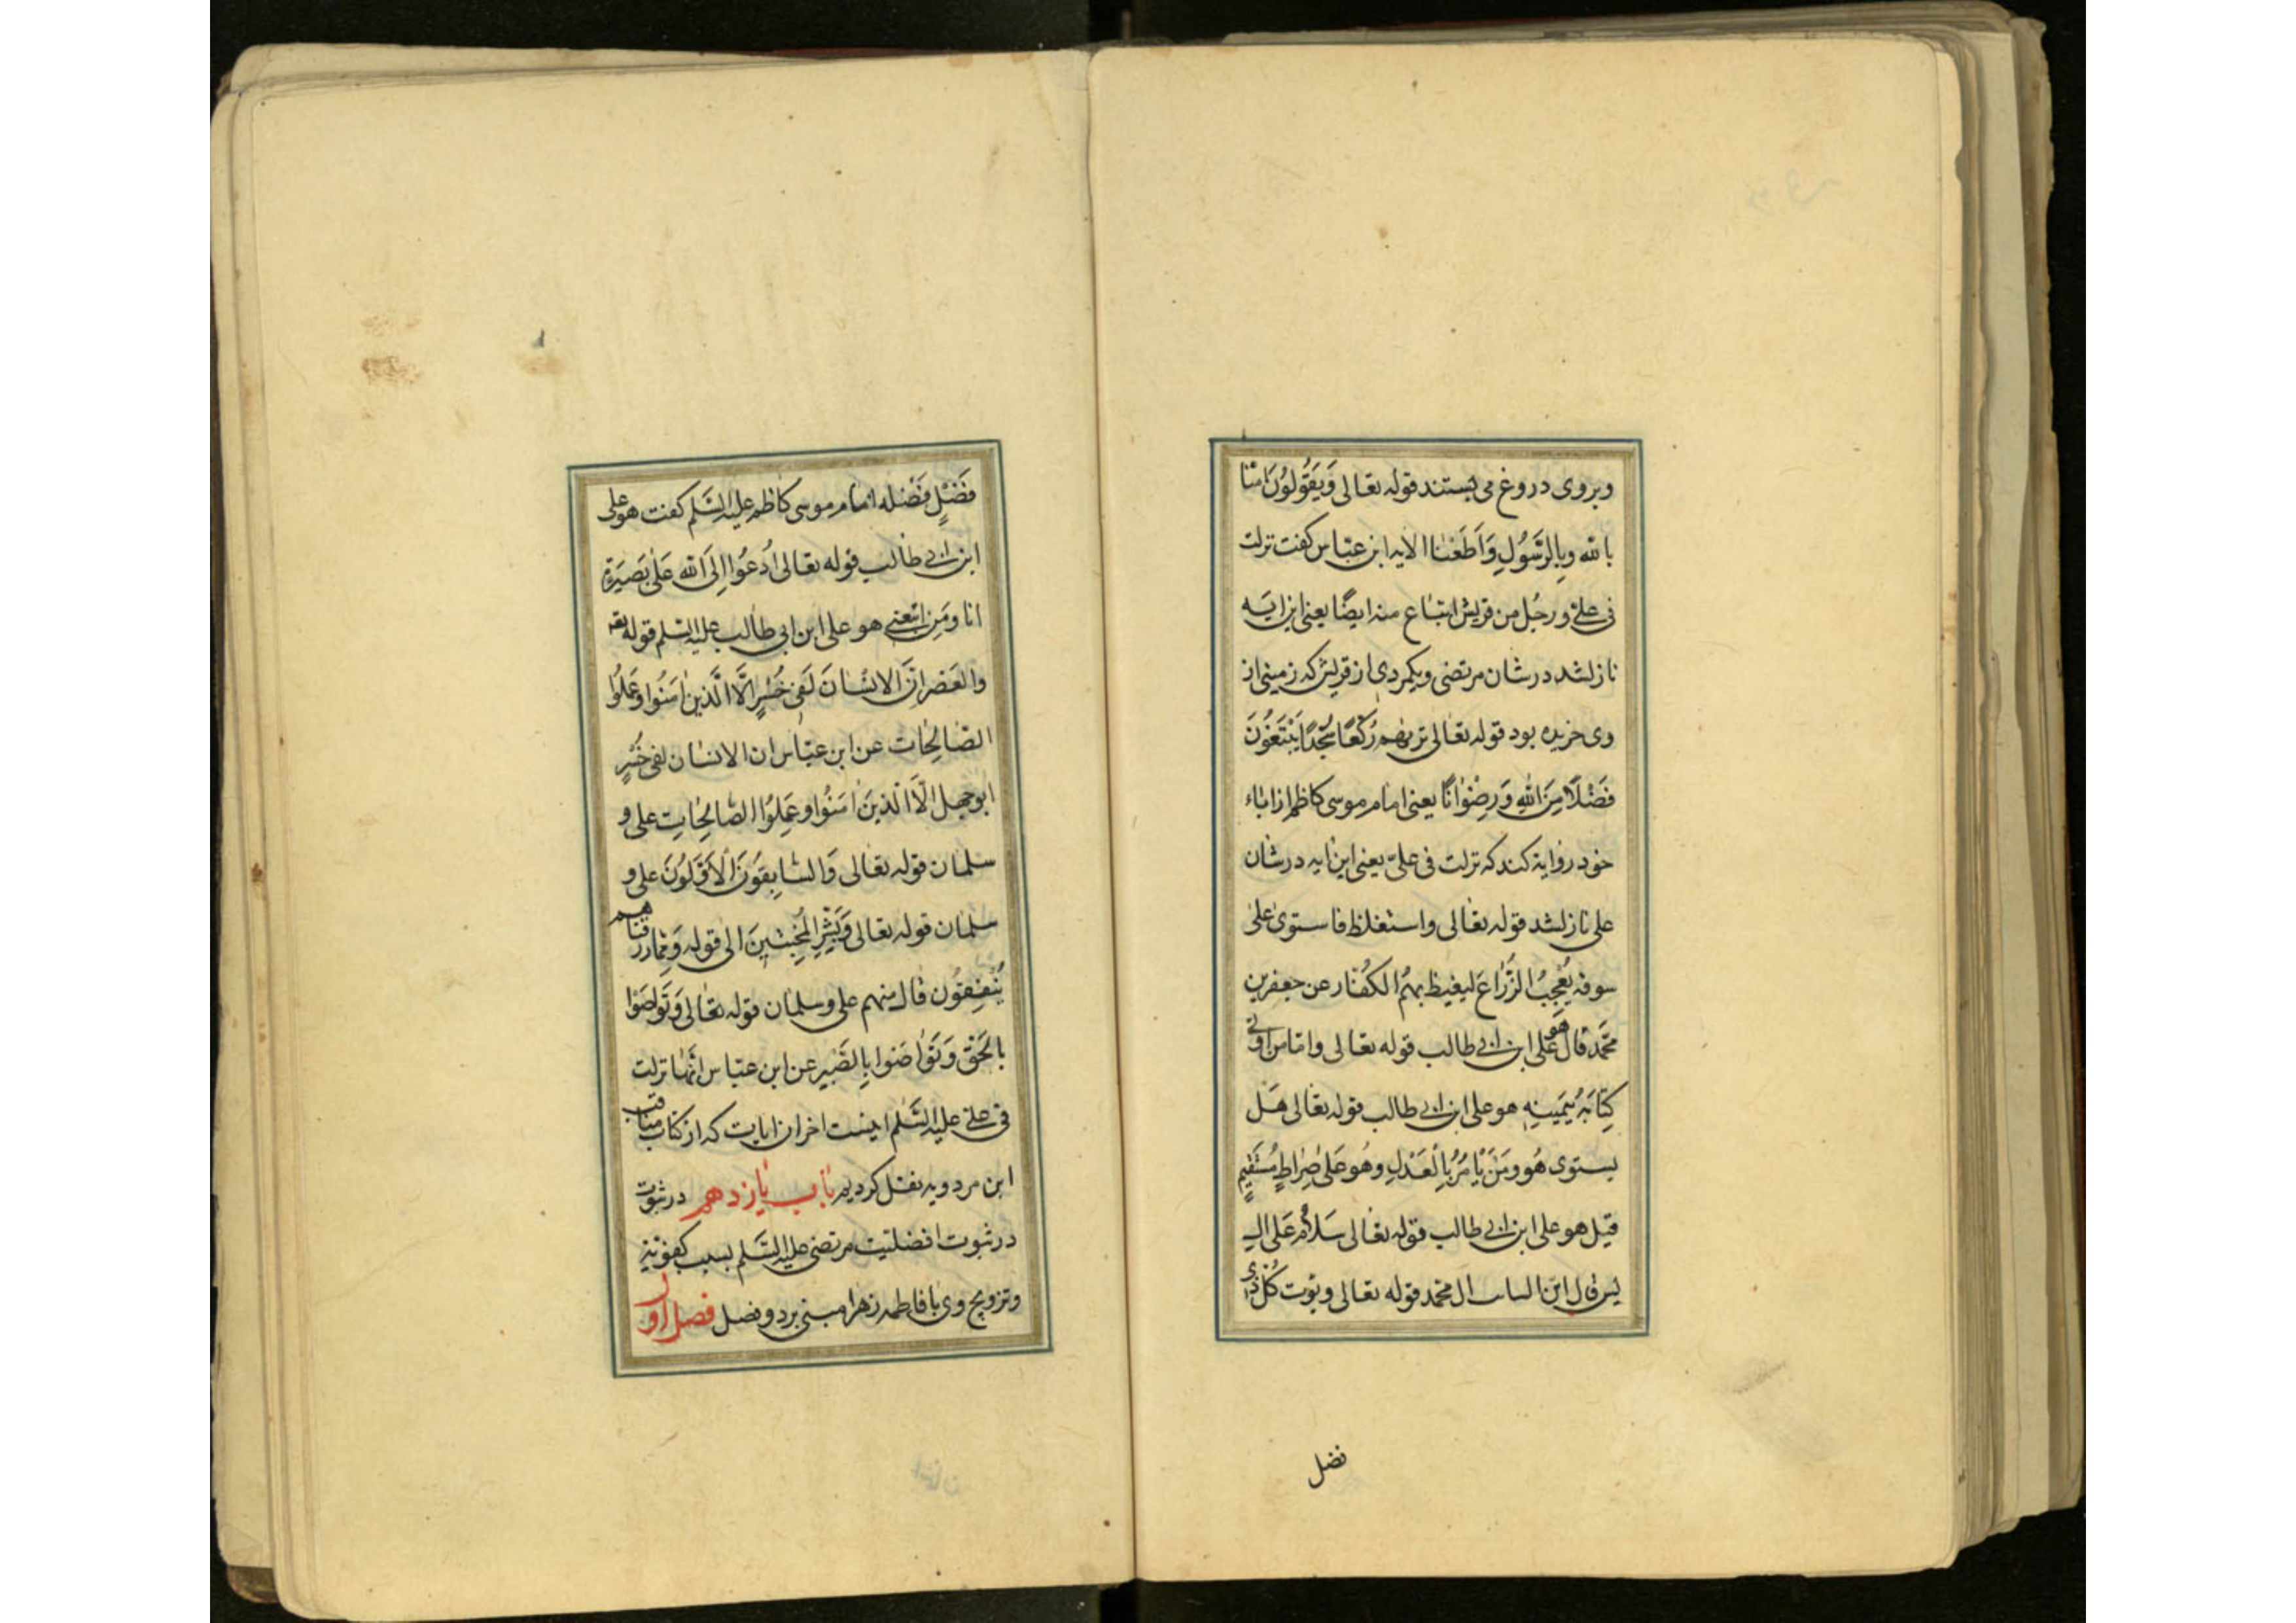 وبروی دروغ می بستند قوله تعالی وَيَقُولُونَ امَنّا
بالله وبِالرَّسُولِ وَاَطَعْنٰا الایه ابن عبّاس کفت نزلت
فی علیّ ورجُل من قریش ابتٰاع منه ایضًا یعنی این ایَه
نازلشد درشان مرتضی ویکمردی از قریش که زمینی از
وی خریده بود قوله تعٰالی تریٰهم رُکَّعًا سُجَّدًا یَبْتَغُونَ
فَضْلًا مِنَ اللهِ وَرِضْوٰانًا یعنی امٰام موسی کاظم از اباء
خود روایة کند که نزلت فی علیّ یعنی این ایه درشان
علی نازلشد قوله تعٰالی واستغلظ فاستوی علیٰ
سوقه یُعْجِبُ الزُّرّٰاعَ لیغیظ بهمُ الکُفّٰار عن جعفر بن
محمّد قال هو علی ابن ابی طالب قوله تعالی وامّا من اوتی
کِتٰابَهُ بِیَمینِهِ هو علی ابن ابی طالب قوله تعٰالی هَل
یستوی هُوَ ومَنْ یَأمُرُ بِالْعَدْلِ وهُو عَلیٰ صِرٰاطٍ مُسْتَقیمٍ
قیل هو علی ابن ابی طالب قوله تعٰالی سَلٰامٌ عَلیٰ ال
یس قال ابن ال محمد قوله تعالی ویوت کُلَّ ذی
فضل
فَضْلٍ فَضْله امٰام موسی کاظم علیه السَّلم کفت هو علی
ابن ابی طٰالب قوله تعٰالی اُدعُوا اِلَی الله عَلیٰ بَصیرَةٍ
انا ومَنِ اتّبعنی هو علی ابن ابی طٰالب علیه السّلم قوله تعه
والعَصْرِ اِنَّ الانسٰانَ لَفی خُسْرٍ اِلَّا الَّذینَ امَنُوا وعَمِلُوا
الصّالِحٰات عن ابن عبّاس ان الانسٰان لفی خُسْرٍ
ابوجهل الَّا الَّذینَ امَنُوا وعَمِلُوا الصّالِحٰاتِ علی و
سلمٰان قوله تعٰالی وَالسّابِقُونَ الْاَوَّلُونَ علی و
سلمٰان قوله تعٰالی وَبَشِّرِ الْمُخْبِتینَ الی قوله ومِمّا رزقناهم
یُنْفِقُون قال منهم علی وسلمٰان قوله تعٰالی وَتَوٰاصَوْا
بِالْحَقّ وَتَوٰاصَوْا بِالصَّبْرِ عن ابن عبّاس انّهٰا نزلت
فی علی علیه السَّلم اینست اخر ان ایات که از کتاب مناقب
ابن مردویه نقل کردیم باب یازدهم در ثبوت
در ثبوت افضلیت مرتضی علیه السَّلم بسبب کفویّة
وتزویج وی با فاطمه زهرا مبنی بر دو فصل فصل اول